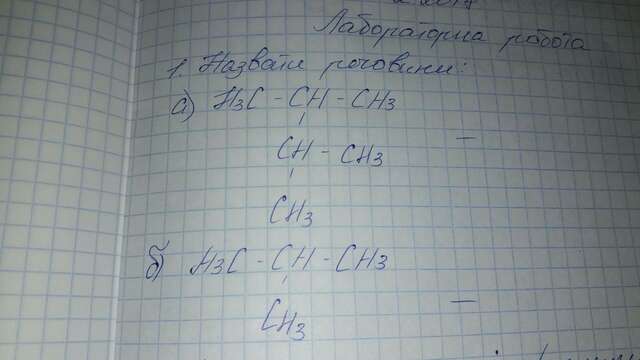 Лабораторна робота
1. Назвати речовини:
а) H3C - CH - CH3
CH - CH3 —
CH3
б) H3C - CH - CH3
CH3 —